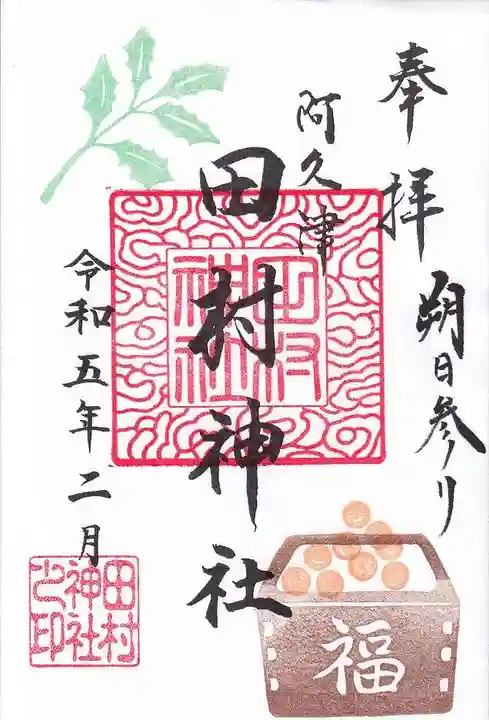 奉拝
朔日参り
阿久津
田村神社
令和五年二月
田村
神社
田村
神社
之印
福